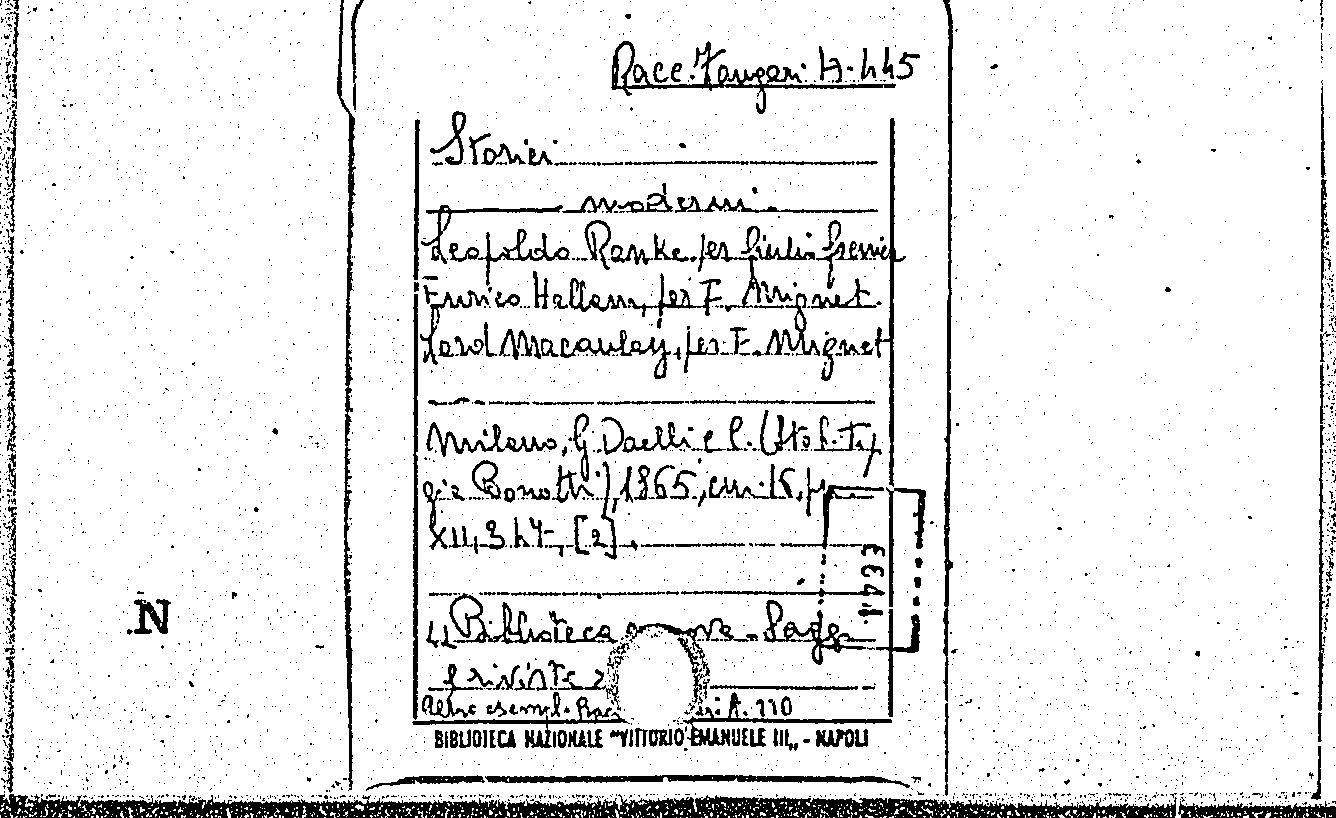 Racc. Zangari H. 445
Storici
moderni.
Leopoldo Ranke. per Giulio
Enrico Hallam, per F. Mignet.
Lord Macauley, per F. Mignet
Milano, G. Daelli e C. (Stab. Tipo
gia Bonotti), 1865, cm. 15, pp.
XII, 347, [2].
Biblioteca nuova - Sagg
e riviste
altro esempl. Racc. A. 110
BIBLIOTECA NAZIONALE "VITTORIO EMANUELE III„ - NAPOLI
N